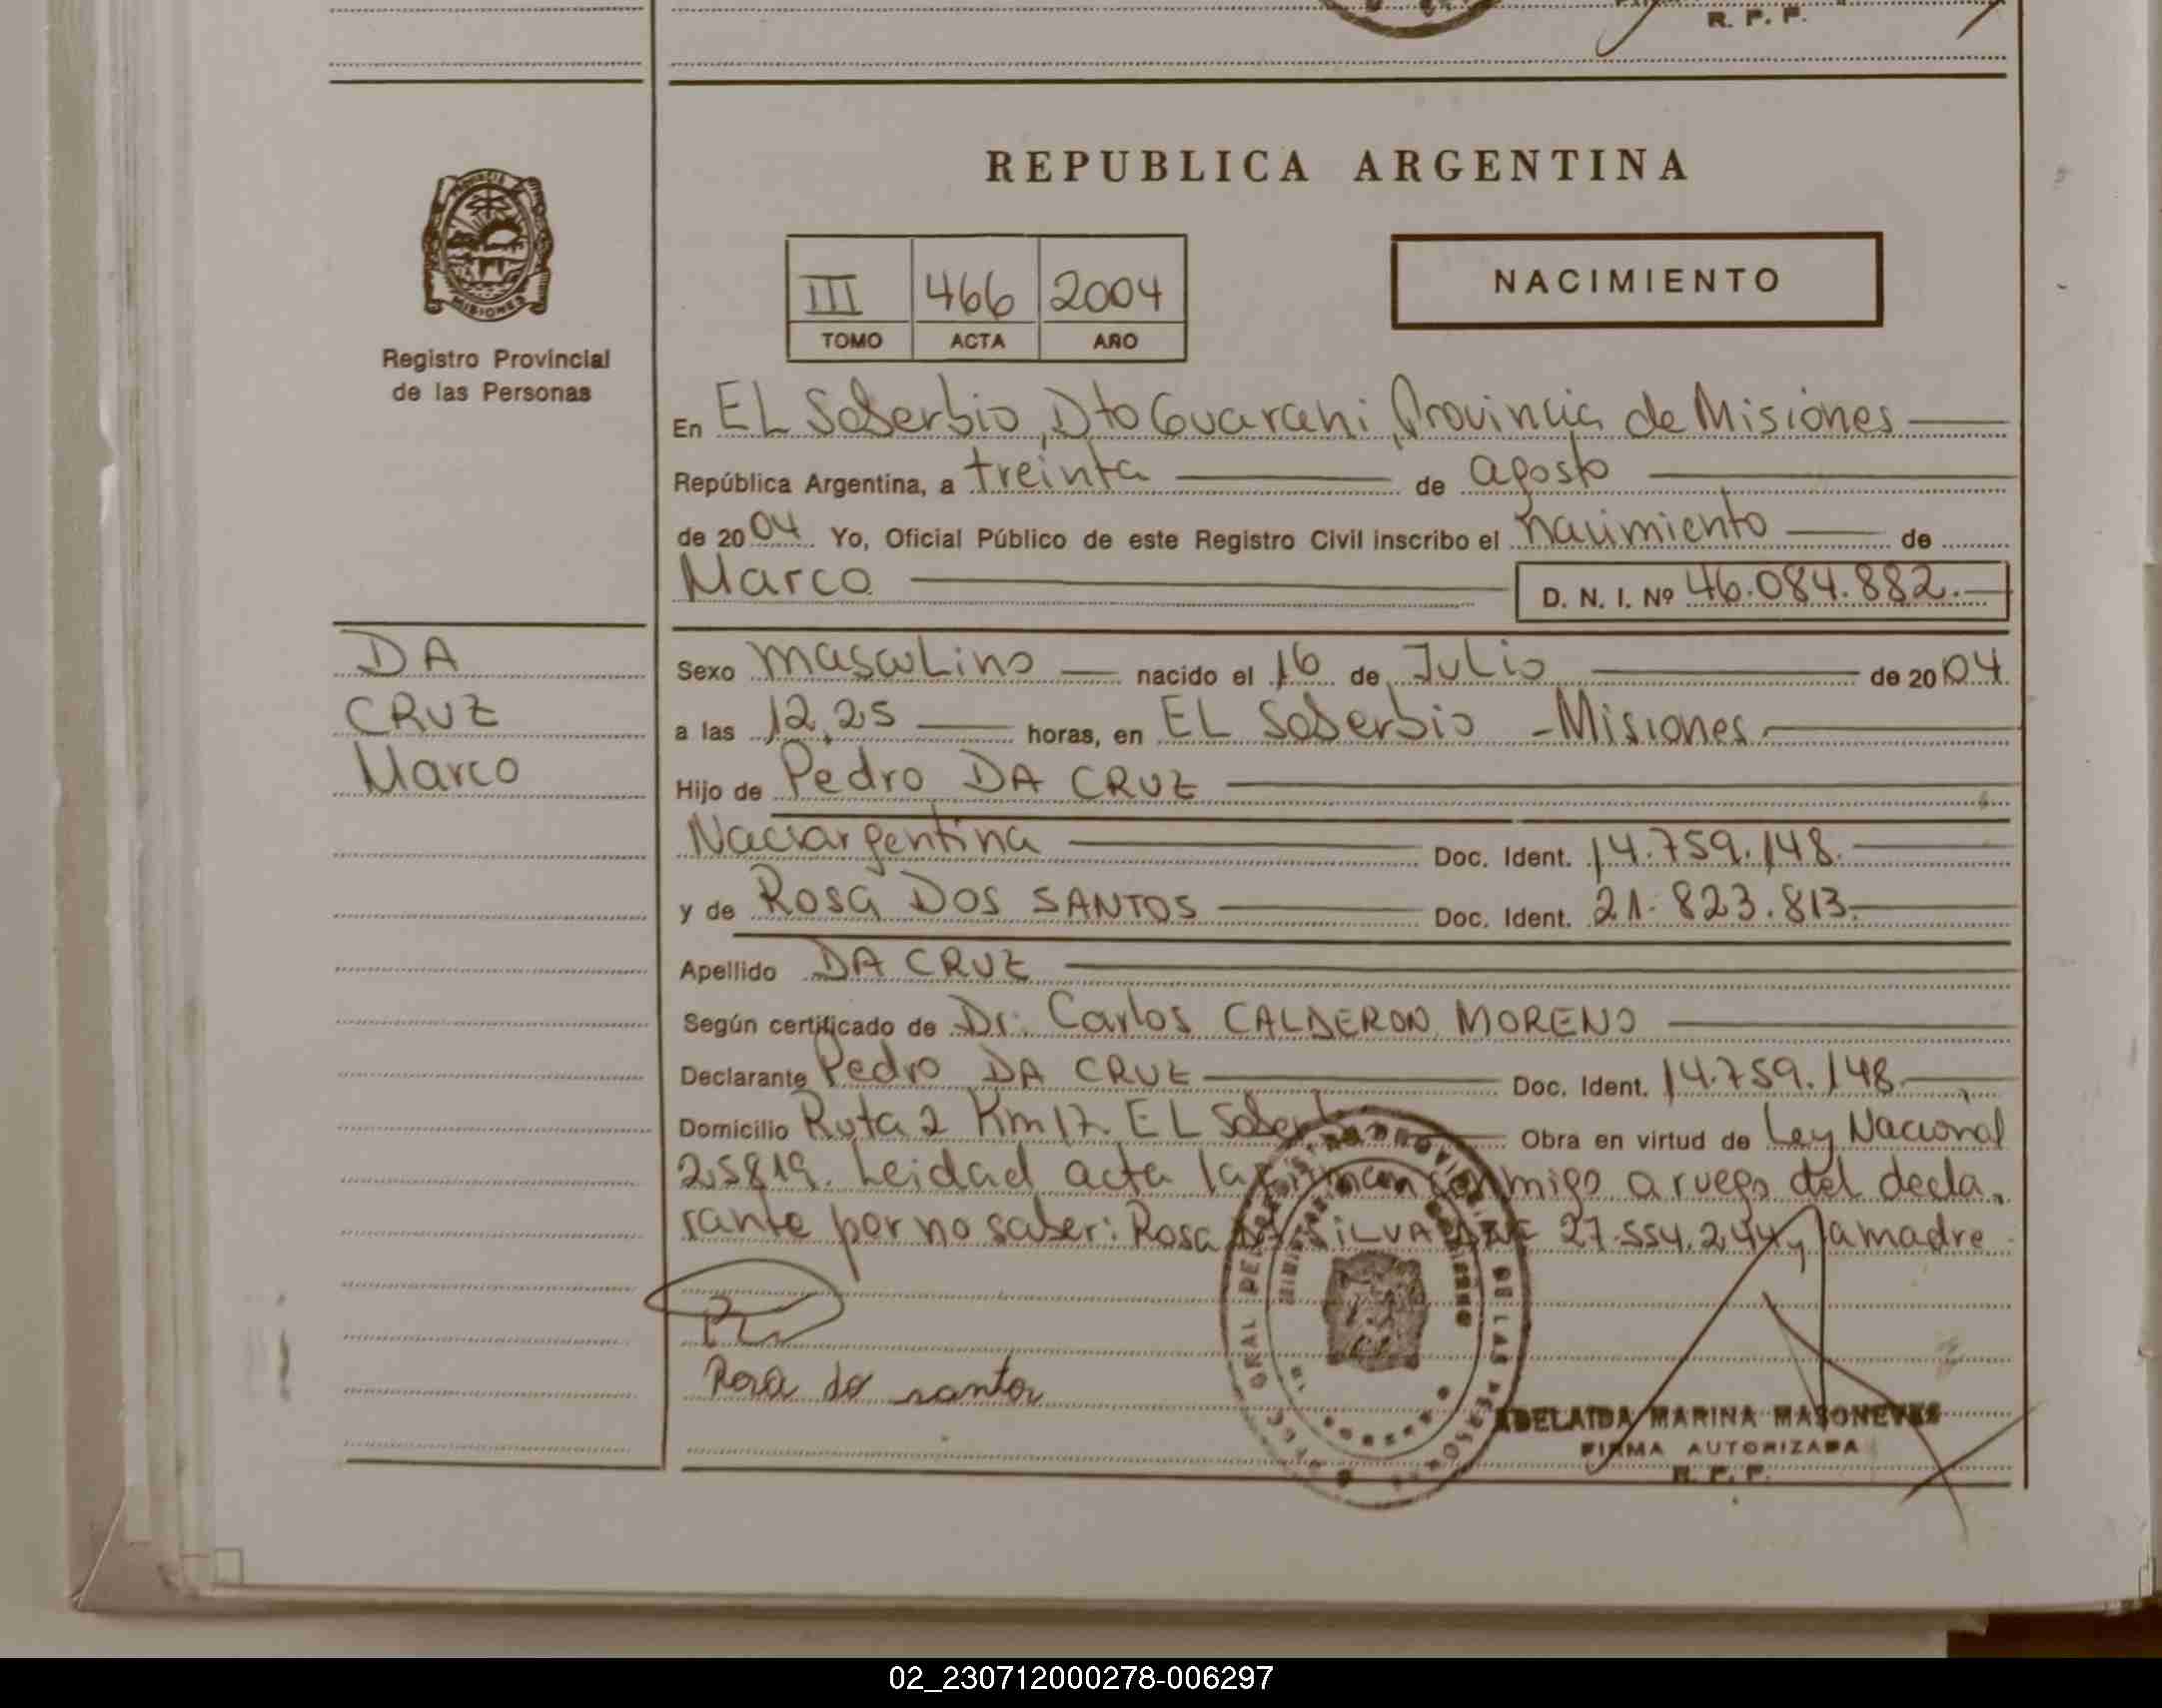 R. P. P.
REPUBLICA ARGENTINA
MISIONES
Registro Provincial
de las Personas
III 466 2004
TOMO ACTA AÑO
NACIMIENTO
En EL Soberbio, Dto Guarani, Provincia de Misiones
República Argentina, a treinta de agosto
de 2004 Yo, Oficial Público de este Registro Civil inscribo el nacimiento de
Marco D. N. I. Nº 46.084.882.
DA
CRUZ
Marco
Sexo masculino nacido el 16 de Julio de 2004
a las 12,25 horas, en EL Soberbio - Misiones
Hijo de Pedro DA CRUZ
Nac. argentina Doc. Ident. 14.759.148.
y de Rosa DOS SANTOS Doc. Ident. 21.823.813.
Apellido DA CRUZ
Según certificado de Dr. Carlos CALDERON MORENO
Declarante Pedro DA CRUZ Doc. Ident. 14.759.148.
Domicilio Ruta 2 Km 17. EL Obra en virtud de Ley Nacional
25819. Leidad acta la firman conmigo a ruego del decla,
rante por no saber: Rosa SILVA 27.554.244 y la madre
Rosa do santos
ADELAIDA MARINA MASONEVES
FIRMA AUTORIZADA
R. P. P.
02_230712000278-006297